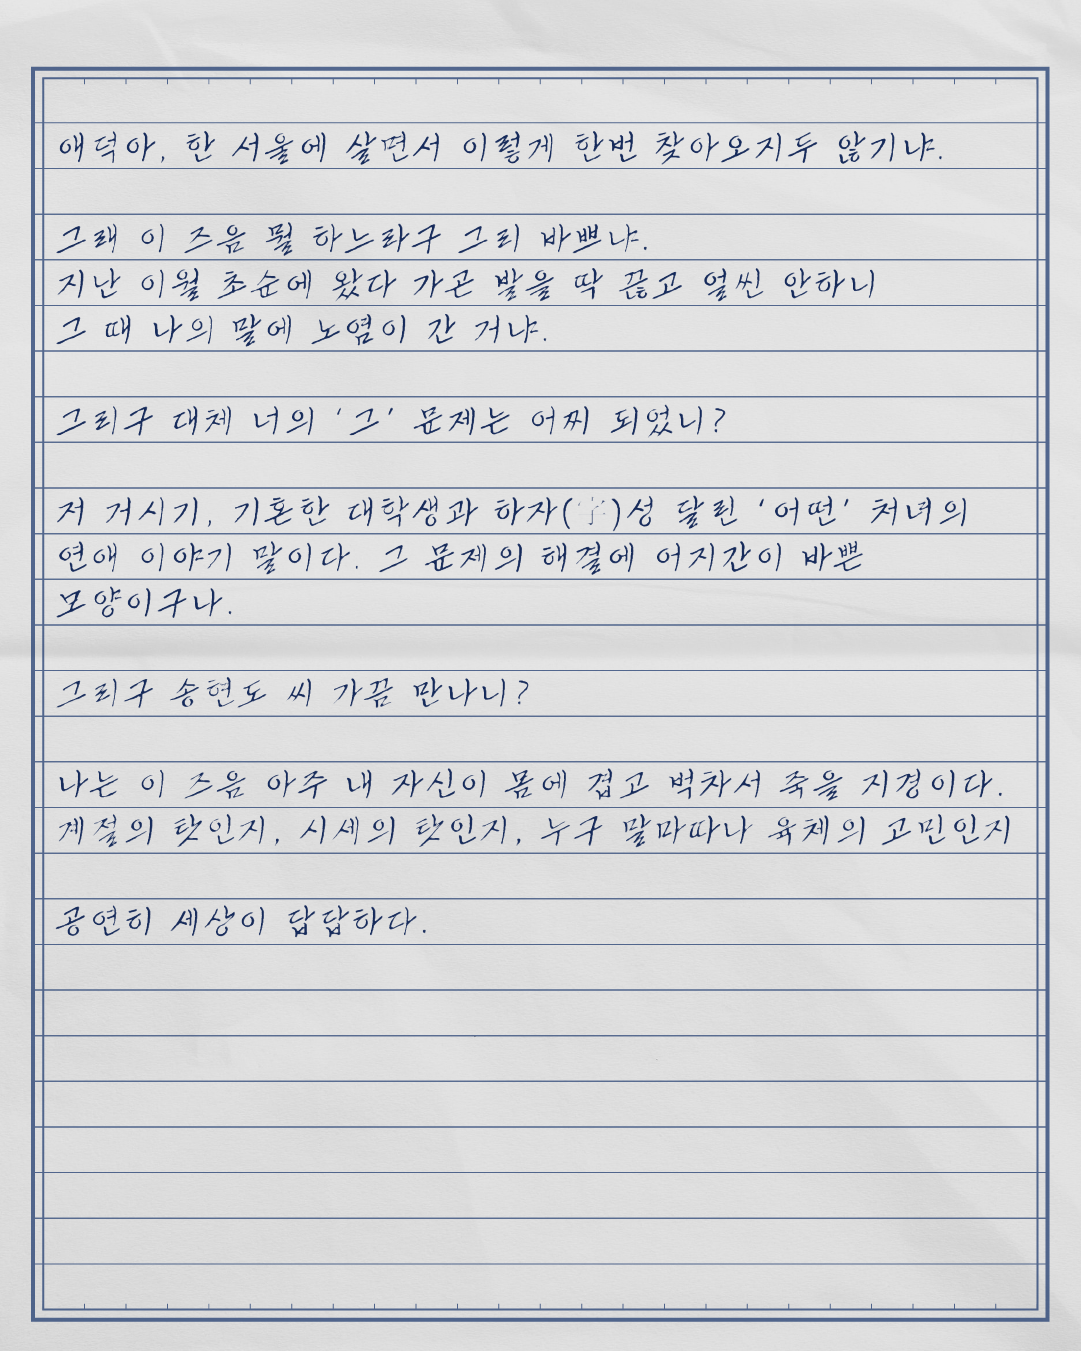 애덕아, 한 서울에 살면서 이렇게 한번 찾아오지두 않기냐.
그래 이 즈음 뭘 하느라구 그리 바쁘냐.
지난 이월 초순에 왔다 가곤 발을 딱 끊고 얼씬 안하니
그 때 나의 말에 노염이 간 거냐.
그리구 대체 너의 '그' 문제는 어찌 되었니?
저 거시기, 기혼한 대학생과 하자(字)성 달린 '어떤' 처녀의
연애 이야기 말이다. 그 문제의 해결에 어지간이 바쁜
모양이구나.
그리구 송현도 씨 가끔 만나니?
나는 이 즈음 아주 내 자신이 몸에 겹고 벅차서 죽을 지경이다.
계절의 탓인지, 시세의 탓인지, 누구 말마따나 육체의 고민인지
공연히 세상이 답답하다.